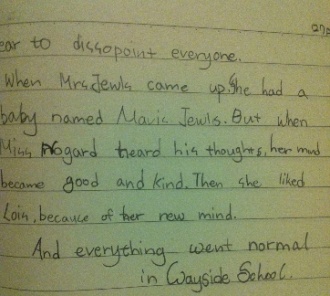 ear to dissopoint everyone.
When Mrs Jewls came up, she had a
baby named Mavis Jewls. But when
Miss Nogard heard his thoughts, her mud
became good and kind. Then she liked
Loin, because of her new mind.
And everything went normal
in Wayside School.